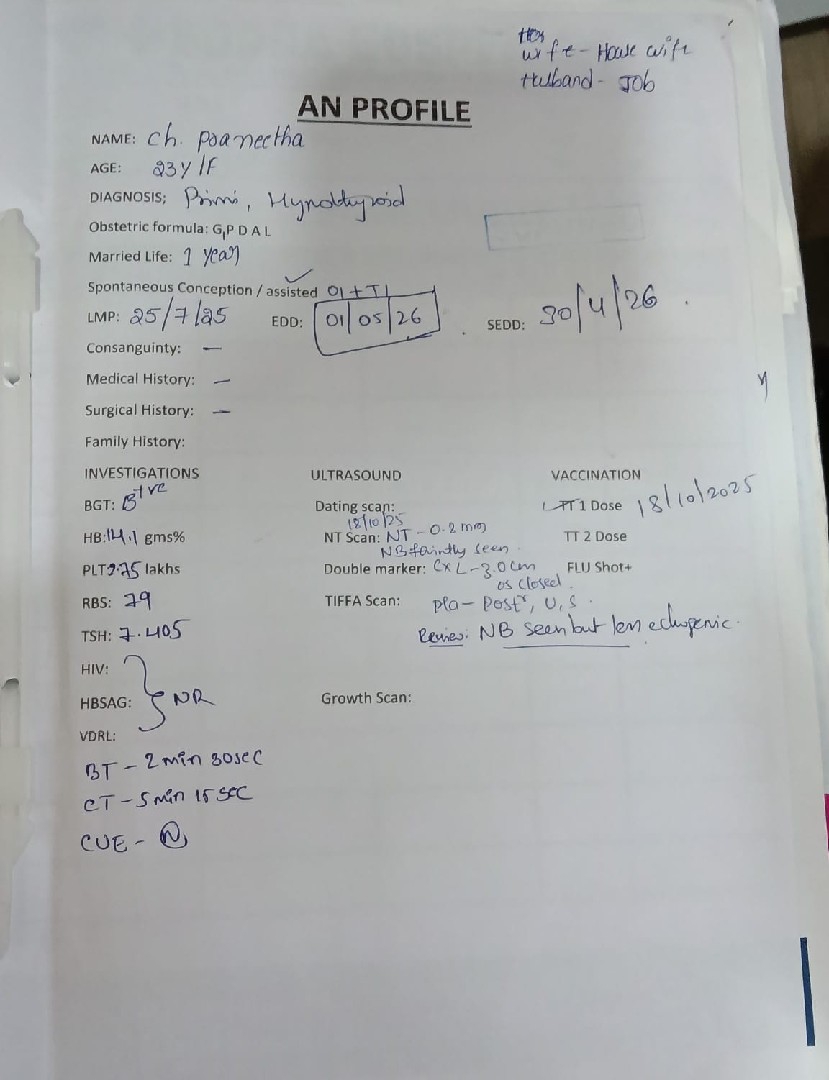 Wife - House wife
Husband - Job
AN PROFILE
NAME: Ch.
AGE: 23Y/F
DIAGNOSIS: Primi, Hypothyroid
Obstetric formula: G,P D A L
Married Life: 1 year
Spontaneous Conception / assisted OI + TI
LMP: 25/7/25 EDD: 01/05/26 SEDD: 30/4/26
Consanguinty: —
Medical History: —
Surgical History: —
Family History:
INVESTIGATIONS ULTRASOUND VACCINATION
BGT: B+ve Dating scan: TT 1 Dose 18/10/2025
18/10/25
HB: 14.1 gms% NT Scan: NT - 0.2 mm TT 2 Dose
NB faintly seen.
PLT 2.75 lakhs Double marker: CxL - 3.0cm FLU Shot+
os closed
RBS: 79 TIFFA Scan: pla - Postr, U, S.
TSH: 7.405 Review: NB seen but less echogenic.
HIV:
HBSAG: NR Growth Scan:
VDRL:
BT - 2 min 30sec
CT - 5 min 15 sec
CUE - N